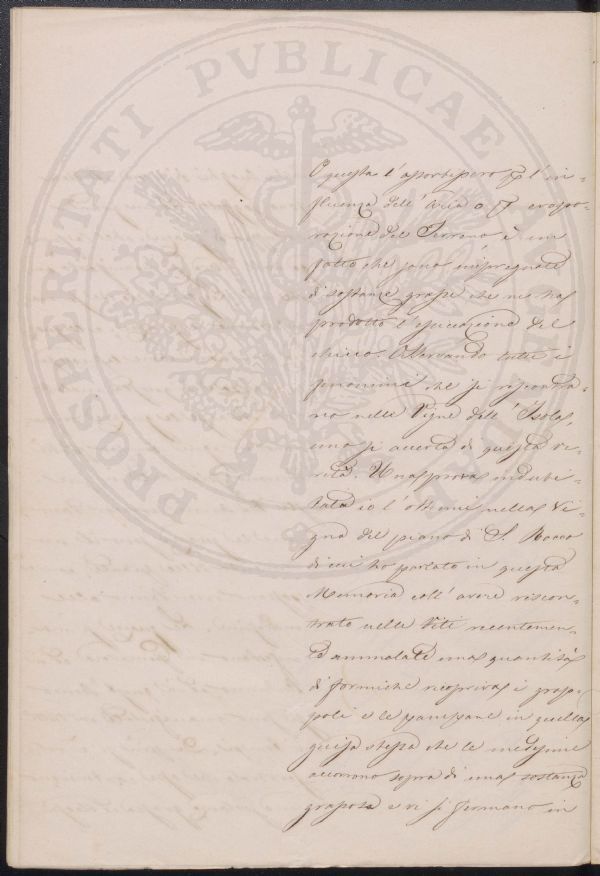 PROSPERITATI PVBLICAE
O questa è assorta però p l'in=
fluenza dell' Aria o p evapo=
razione del Terreno è un
fatto che sono impregnate
di sostanze grasse che ne ha
prodotto l'essiccazione del
chicco. Osservando tutti i
fenomini che si riscontra=
no nelle Vigne dell' Isola,
uno si accerta di questa ve=
rità. Una prova indubi=
tata io l'ottenni nella Vi=
gna del piano di S. Rocco
di cui ho parlato in questa
Memoria coll' avere riscon=
trato nelle Viti recentemen=
te ammalate una quantità
di formiche ricopriva i grap=
poli e le pampane in quella
guisa stessa che le medesime
accorrono sopra di una sostanza
grassosa e vi si fermano in